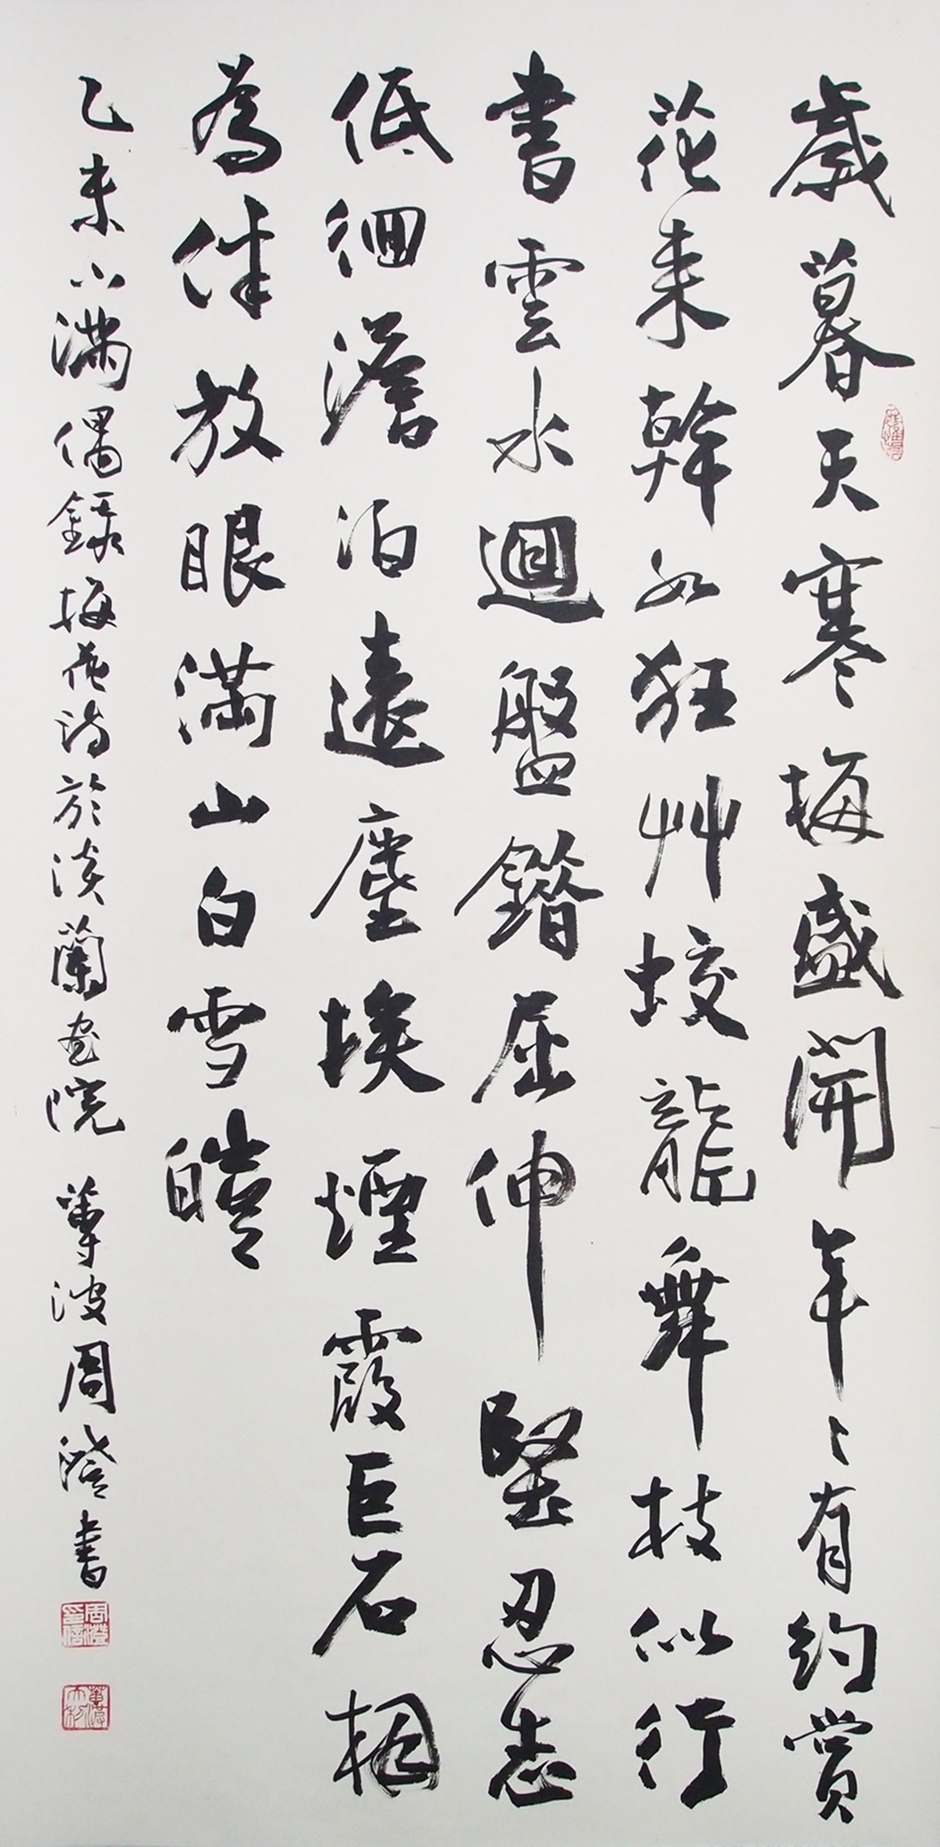 歲暮天寒梅盛開年〻有約賞
花来幹如狂艸蛟龍舞枝似行
書雲水迴盤鐕屈伸堅忍志
低徊澹泊遠塵埃煙霞巨石相
為伴放眼滿山白雪皚
乙未小滿偶錄梅花詩於淡蘭畫院 蓴波周澄書
周澄